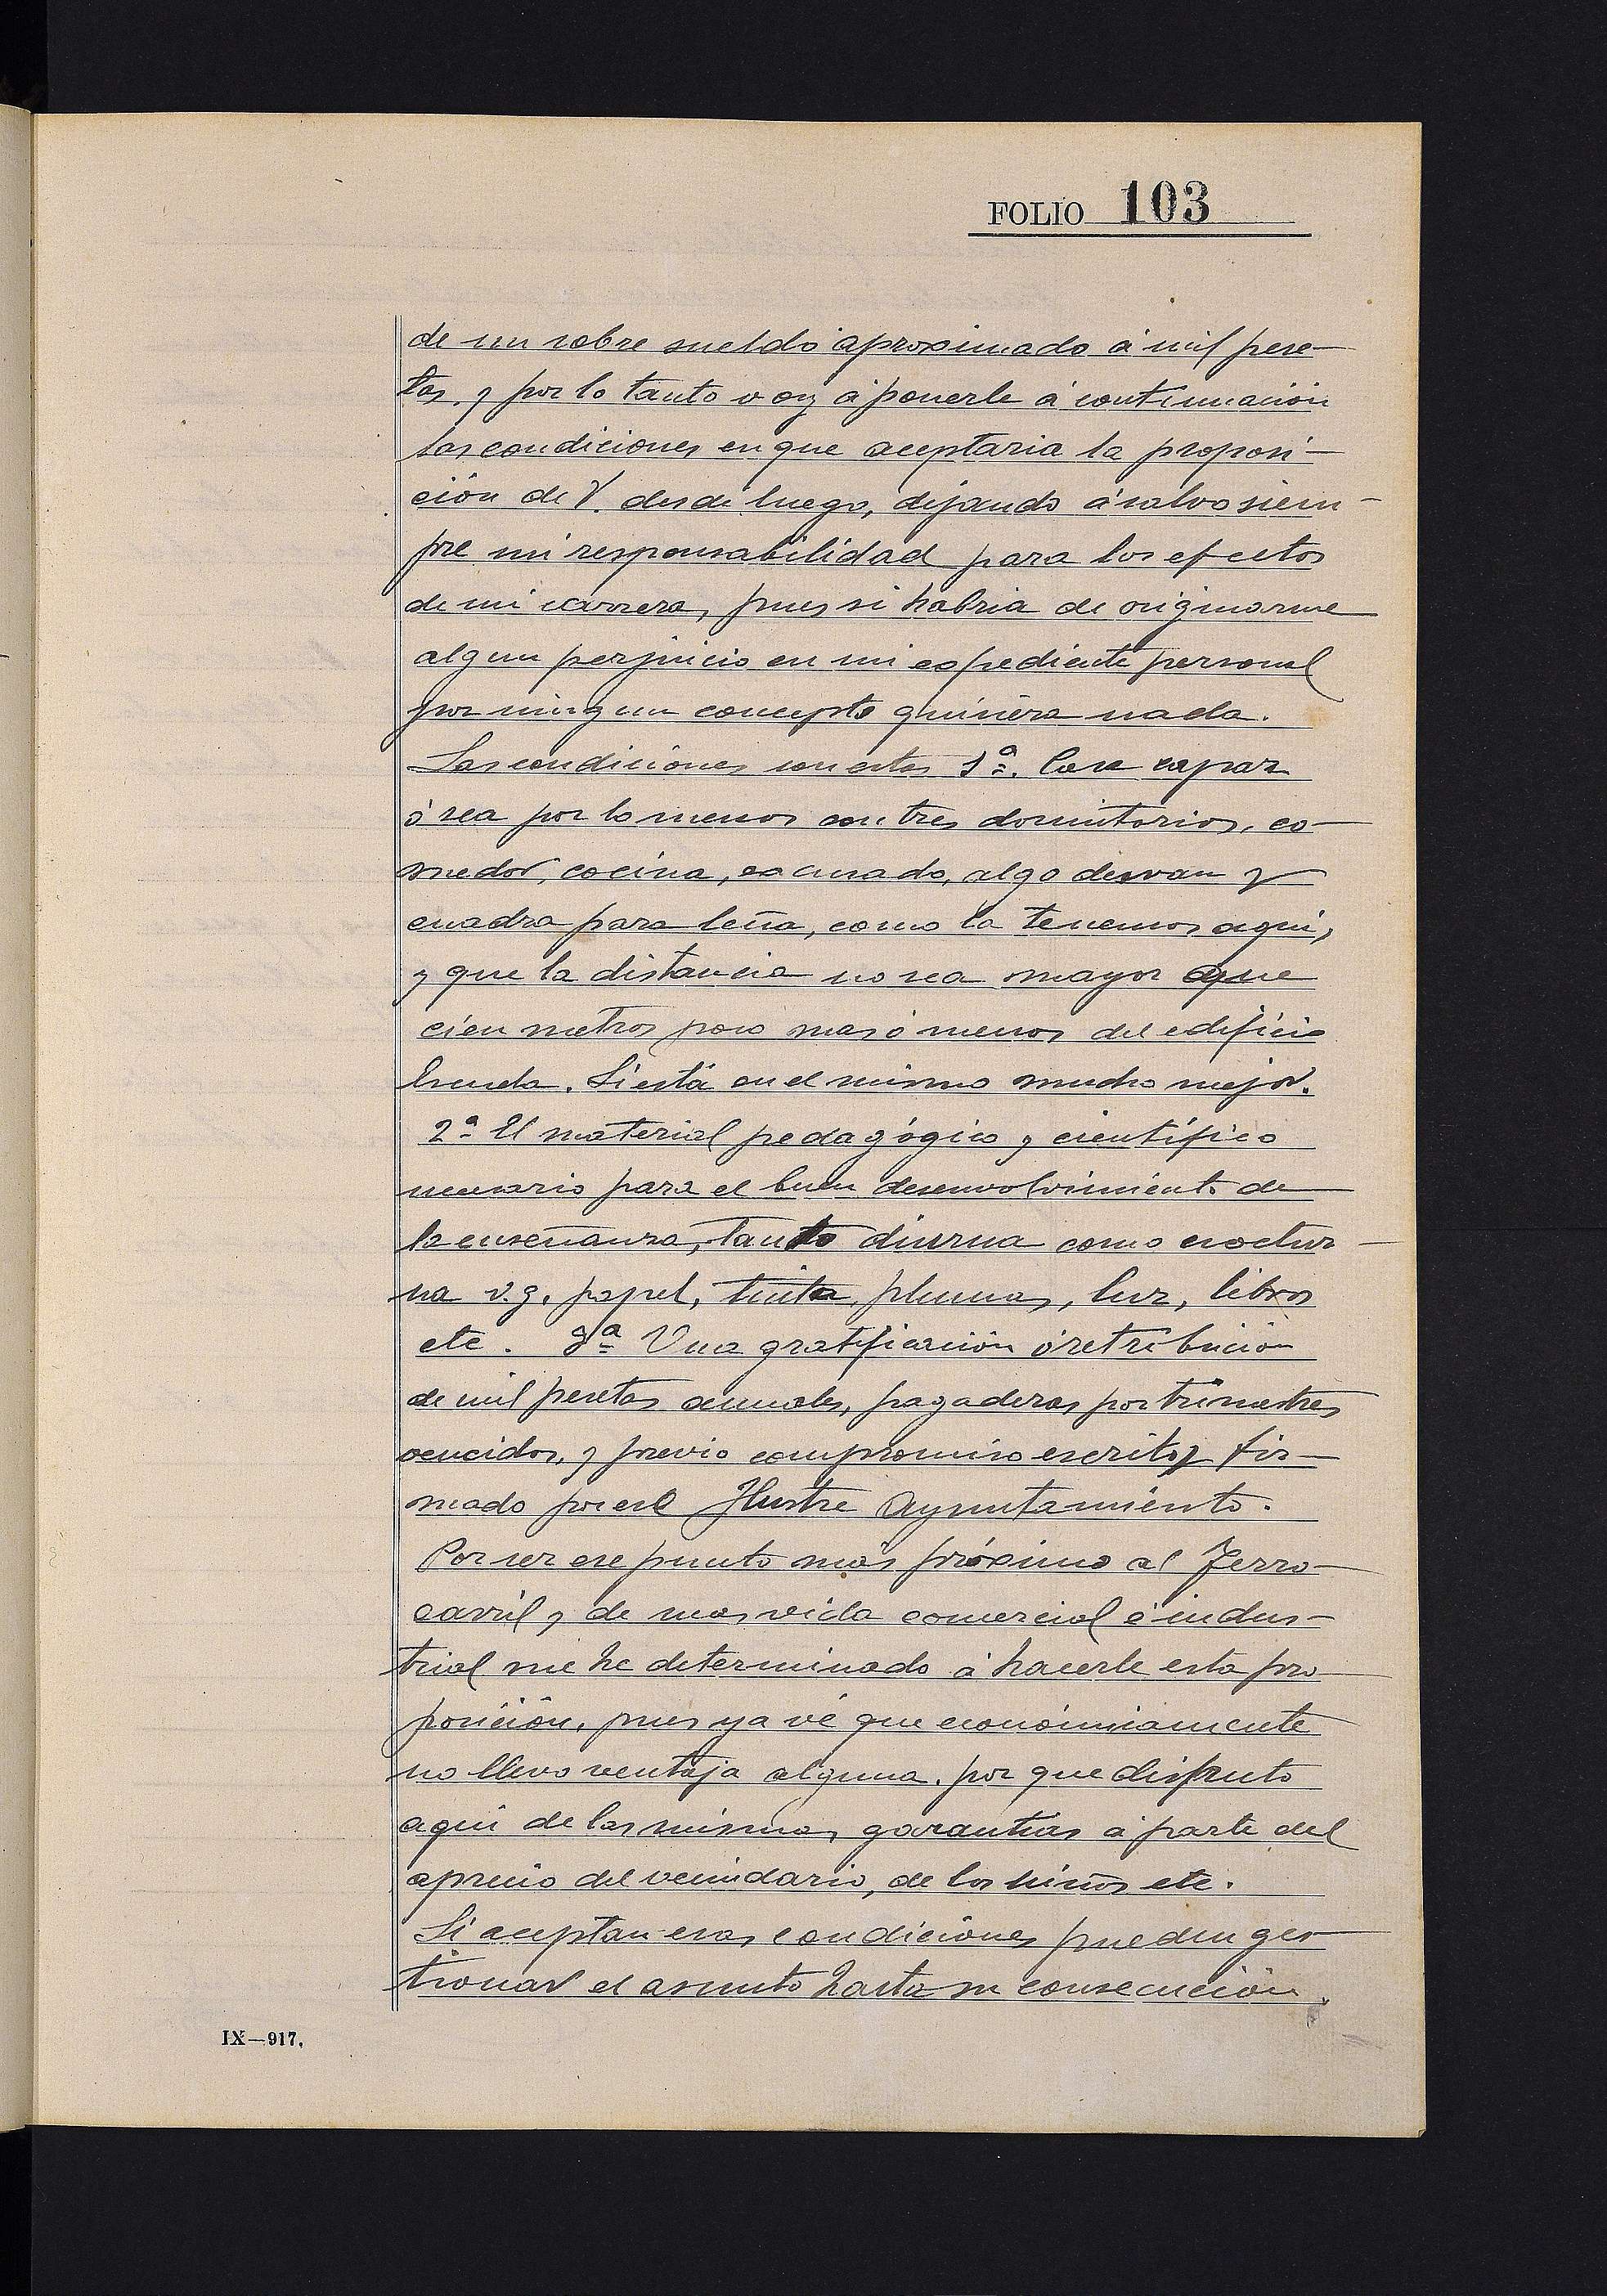 FOLIO 103
de un sobre sueldo aproximado á mil pese-
tas, y por lo tanto voy á ponerle á continuación
las condiciones en que aceptaria la proposi-
ción de V. desde luego, dejando á salvo siem-
pre mi responsabilidad para los efectos
de mi carrera, pues si habria de originarme
algun perjuicio en mi espediente personal
por ningun concepto quisiera nada.
Las condiciones son estas 1ª. Casa capaz
ó sea por lo menos con tres dormitorios, co-
medor, cocina, escusado, algo desvan y
cuadra para leña, como la tenemos aqui,
y que la distancia no sea mayor que
cien metros poco mas ó menos del edificio
Escuela. Si está en el mismo mucho mejor.
2ª El material pedagógico y científico
necesario para el buen desenvolvimiento de
la enseñanza, tanto diurna como noctur-
na v.g. papel, tinta, plumas, luz, libros
etc. 3ª Una gratificación ó retribución
de mil pesetas anuales, pagaderas por trimestres
vencidos, y previo compromiso escrito y fir-
mado por ese Ilustre Ayuntamiento.
Por ser ese punto más próximo al Ferro-
carril y de mas vida comercial é indus-
trial me he determinado á hacerle esta pro-
posición, pues ya vé que económicamente
no llevo ventaja alguna, por que disfruto
aqui de las mismas garantias á parte del
aprecio del vecindario, de los niños etc.
Si aceptan esas condiciones pueden ges-
tionar el asunto hasta su consecución.
IX—917.